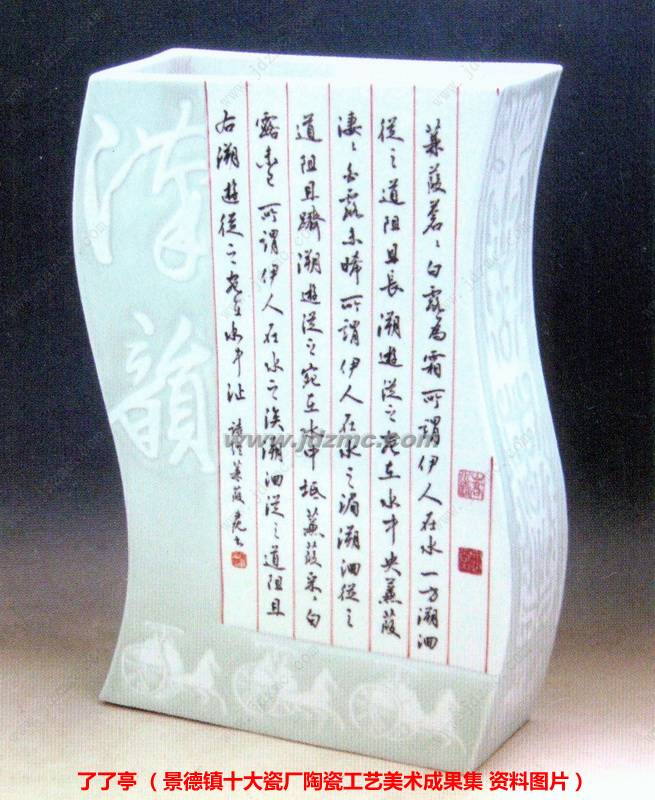 蒹葭蒼〻白露為霜所謂伊人在水一方溯洄
從之道阻且長溯遊從之宛在水中央蒹葭
淒〻白露未晞所謂伊人在水之湄溯洄從之
道阻且躋溯遊從之宛在水中坻蒹葭采〻白
露未已所謂伊人在水之涘溯洄從之道阻且
右溯遊從之宛在水中沚 詩經蒹葭
漢韻
www.jdzmc.com
了了亭 （ 景德镇十大瓷厂陶瓷工艺美术成果集 资料图片 ）